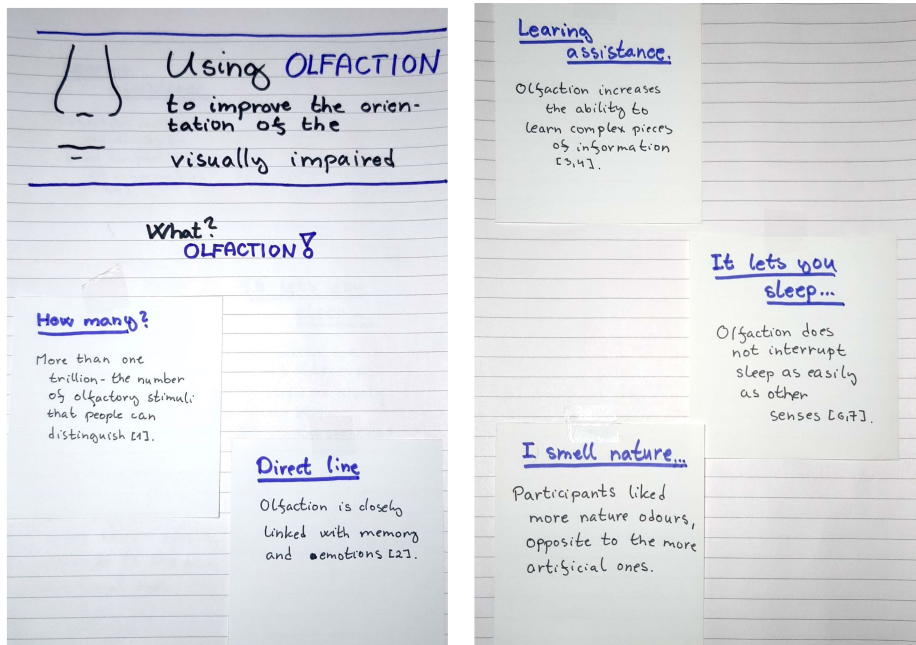 Using OLFACTION
to improve the orien-
tation of the
visually impaired
What?
OLFACTION!
How many?
More than one
trillion - the number
of olfactory stimuli
that people can
distinguish [1].
Direct line
Olfaction is closely
linked with memory
and emotions [2].
Learing
assistance.
Olfaction increases
the ability to
learn complex pieces
of information
[3,4].
It lets you
sleep...
Olfaction does
not interrupt
sleep as easily
as other
senses [6,7].
I smell nature...
Participants liked
more nature odours,
opposite to the more
artificial ones.